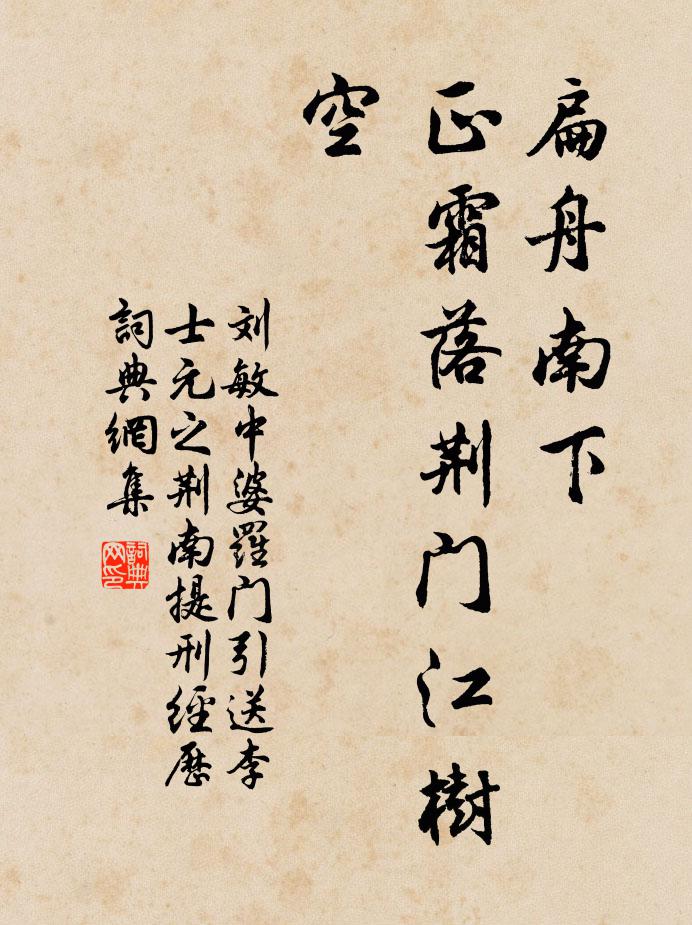 扁舟南下
正霜落荆门江樹
空
刘敏中婆羅门引送李
士元之荆南提刑經歷
詞典網集
詞典网印